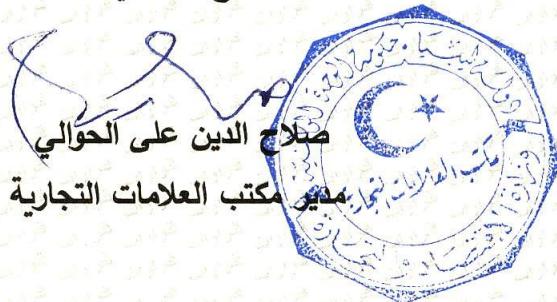 صلاح الدين على الحوالي
مدير مكتب العلامات التجارية
دولة ليبيا حكومة الوحدة الوطنية
وزارة الاقتصاد والتجارة
مكتب العلامات التجارية